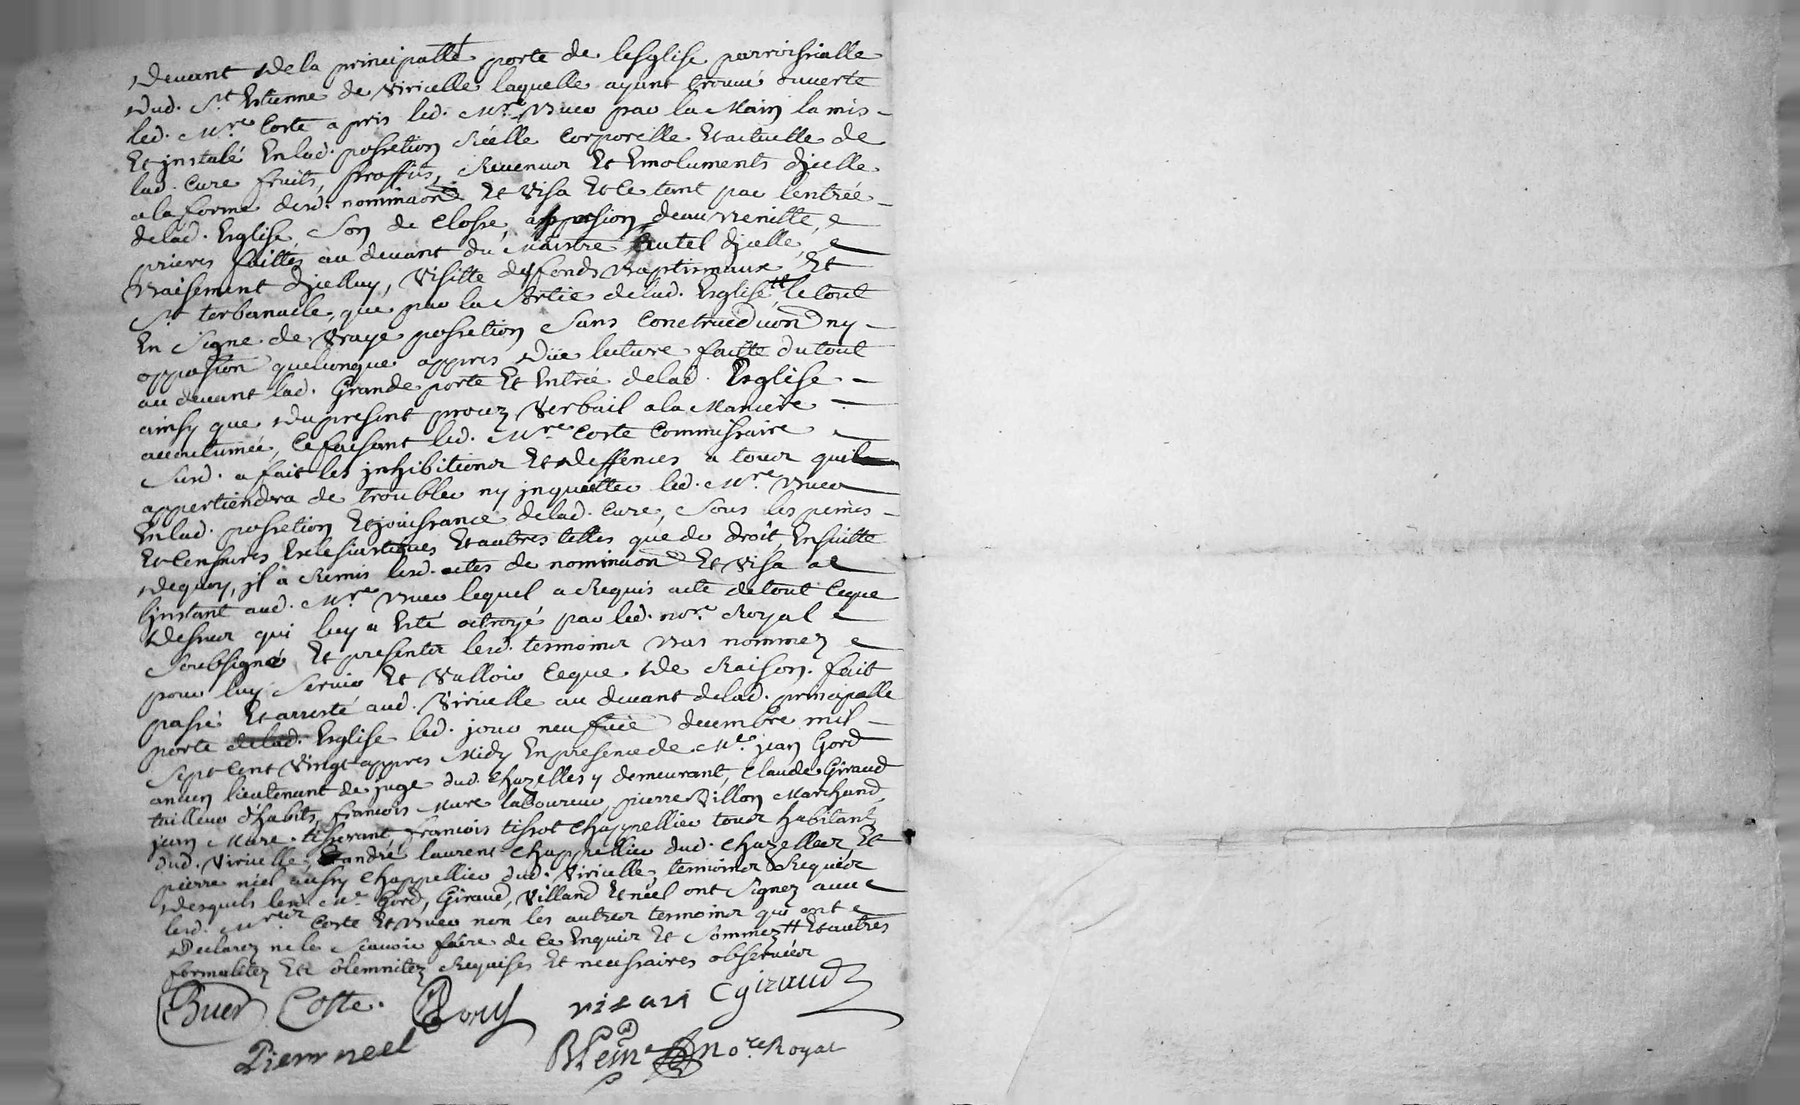 devant de la principalle porte de lesglise parroissialle
dud. St. Estienne de Viricelle laquelle ayant trouvé ouverte
led. Mre. Coste a pris led. Mre. Buer par la Main la mis
Et jnstalé En lad. possetion Réélle Corporelle Et actuelle de
lad. Cure fruits, proffits, Revenus Et Emoluments djcelle
a la forme desd. nominaon Et Visa Et ce tant par lentrée
de lad. Esglise Son de Closse, aspersion deau Beniste,
prieres faittes au devant du Maistre Autel djcelle,
Baisement djcelluy, Visitte des fonds Baptismaux Et
St. terbanacle, que par la Sortie de lad. Esglise le tout
En Signe de Vraye possetion Sans Contradiction ny
oppastion quelconque appres Düe lecture faitte du tout
au devant lad. Grande porte Et Entrée de lad. Esglise
ainsy que du present procez Verbail a la Maniere
accoutumée, Ce faisant led. Mre. Coste Commissaire
Susd. a fait les jnhibitions Et deffences a tous quil
appertiendra de troubler ny jnquietter led. Mre. Buer
En lad. possetion Et jouissance de lad. Cure, Sous les peines
Et Censures Eclesiastiques Et autres telles que de droit Ensuitte
de quoy, jl a Remis lesd. actes de nominaon Et Visa a
Linstant aud. Mre. Buer lequel a Requis acte de tout Ceque
dessus qui luy a Esté octroyé par led. nore. Royal
Soubsigné Et presents lesd. temoins Bas nommez
pour luy Servir Et Valloir Ceque de Raison. fait
passé Et arresté aud. Viricelle au devant de lad. principalle
porte de lad. Esglise led. jour neufuie decembre mil
Sept Cent Vingt appres Midy En presence de Me. jean Gord
ancien lieutenant de juge dud. Chazelles y demeurant, Claude Giraud
tailleur d'habits, francois Mure laboureur, pierre Villon Marchand,
jean Mure tisserant, francois tissot Chappellier tous habitants
dud. Viricelle Et andré laurent Chappellier dud. Chazelles, Et
pierre niel aussy Chappellier dud. Viricelle, temoins Requier
desquels led. Me. Gord, Giraud, Villand Et néel ont Signez avec
lesd. Mres Coste Et Buer non les autres temoins qui ont
Declarez ne le Scavoir faire de Ce Enquis Et Sommez Et autres
formalitez Et Solemnitez Requises Et necessaires observéer
Buer Coste. Gord vilari C giraud
Pierre neel nore Royal